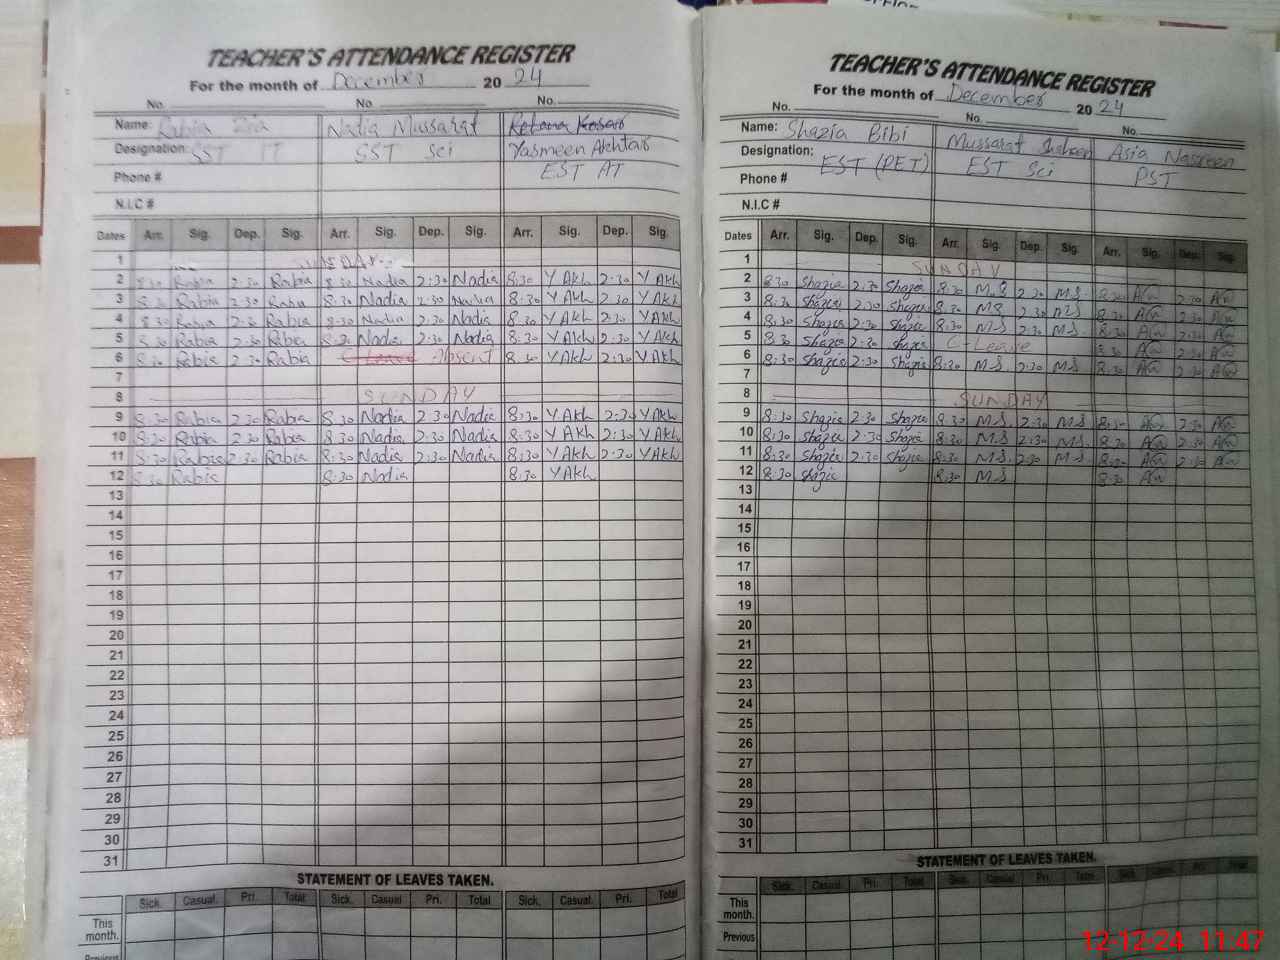 TEACHER'S ATTENDANCE REGISTER
For the month of December 20 24
No. No. No.
Name: Rabia Zia Nadia Mussarat Rehana Kosar
Designation: SST IT SST Sci Yasmeen Akhtar
Phone # EST AT
N.I.C #
Dates Arr. Sig. Dep. Sig. Arr. Sig. Dep. Sig. Arr. Sig. Dep. Sig.
1 SUNDAY
2 8:30 Rabia 2:30 Rabia 8:30 Nadia 2:30 Nadia 8:30 Y Akh 2:30 Y Akh
3 8:30 Rabia 2:30 Rabia 8:30 Nadia 2:30 Nadia 8:30 Y Akh 2:30 Y Akh
4 8:30 Rabia 2:30 Rabia 8:30 Nadia 2:30 Nadia 8:30 Y Akh 2:30 Y Akh
5 8:30 Rabia 2:30 Rabia 8:30 Nadia 2:30 Nadia 8:30 Y Akh 2:30 Y Akh
6 8:30 Rabia 2:30 Rabia C-Leave Absent 8:30 Y Akh 2:30 Y Akh
7
8 SUNDAY
9 8:30 Rabia 2:30 Rabia 8:30 Nadia 2:30 Nadia 8:30 Y Akh 2:30 Y Akh
10 8:30 Rabia 2:30 Rabia 8:30 Nadia 2:30 Nadia 8:30 Y Akh 2:30 Y Akh
11 8:30 Rabia 2:30 Rabia 8:30 Nadia 2:30 Nadia 8:30 Y Akh 2:30 Y Akh
12 8:30 Rabia 8:30 Nadia 8:30 Y Akh
13
14
15
16
17
18
19
20
21
22
23
24
25
26
27
28
29
30
31
STATEMENT OF LEAVES TAKEN.
Sick. Casual. Pri. Total Sick. Casual. Pri. Total Sick. Casual. Pri. Total
This month.
Previous
TEACHER'S ATTENDANCE REGISTER
For the month of December 20 24
No. No. No.
Name: Shazia Bibi Mussarat Shaheen Asia Nasreen
Designation: EST (PET) EST Sci PST
Phone #
N.I.C #
Dates Arr. Sig. Dep. Sig. Arr. Sig. Dep. Sig. Arr. Sig. Dep. Sig.
1 SUNDAY
2 8:30 Shazia 2:30 Shazia 8:30 M.S 2:30 M.S. 8:30 2:30
3 8:30 Shazia 2:30 Shazia 8:30 MS 2:30 M.S 8:30 2:30
4 8:30 Shazia 2:30 Shazia 8:30 M.S 2:30 M.S. 8:30 2:30
5 8:30 Shazia 2:30 Shazia C-Leave 8:30 2:30
6 8:30 Shazia 2:30 Shazia 8:30 M.S. 2:30 M.S 8:30 2:30
7
8 SUNDAY
9 8:30 Shazia 2:30 Shazia 8:30 M.S 2:30 M.S. 8:30 2:30
10 8:30 Shazia 2:30 Shazia 8:30 M.S 2:30 M.S. 8:30 2:30
11 8:30 Shazia 2:30 Shazia 8:30 M.S. 2:30 M.S. 8:30 2:30
12 8:30 Shazia 8:30 M.S 8:30
13
14
15
16
17
18
19
20
21
22
23
24
25
26
27
28
29
30
31
STATEMENT OF LEAVES TAKEN.
Sick. Casual. Pri. Total Sick. Casual. Pri. Total Sick. Casual. Pri. Total
This month.
Previous
12-12-24 11:47